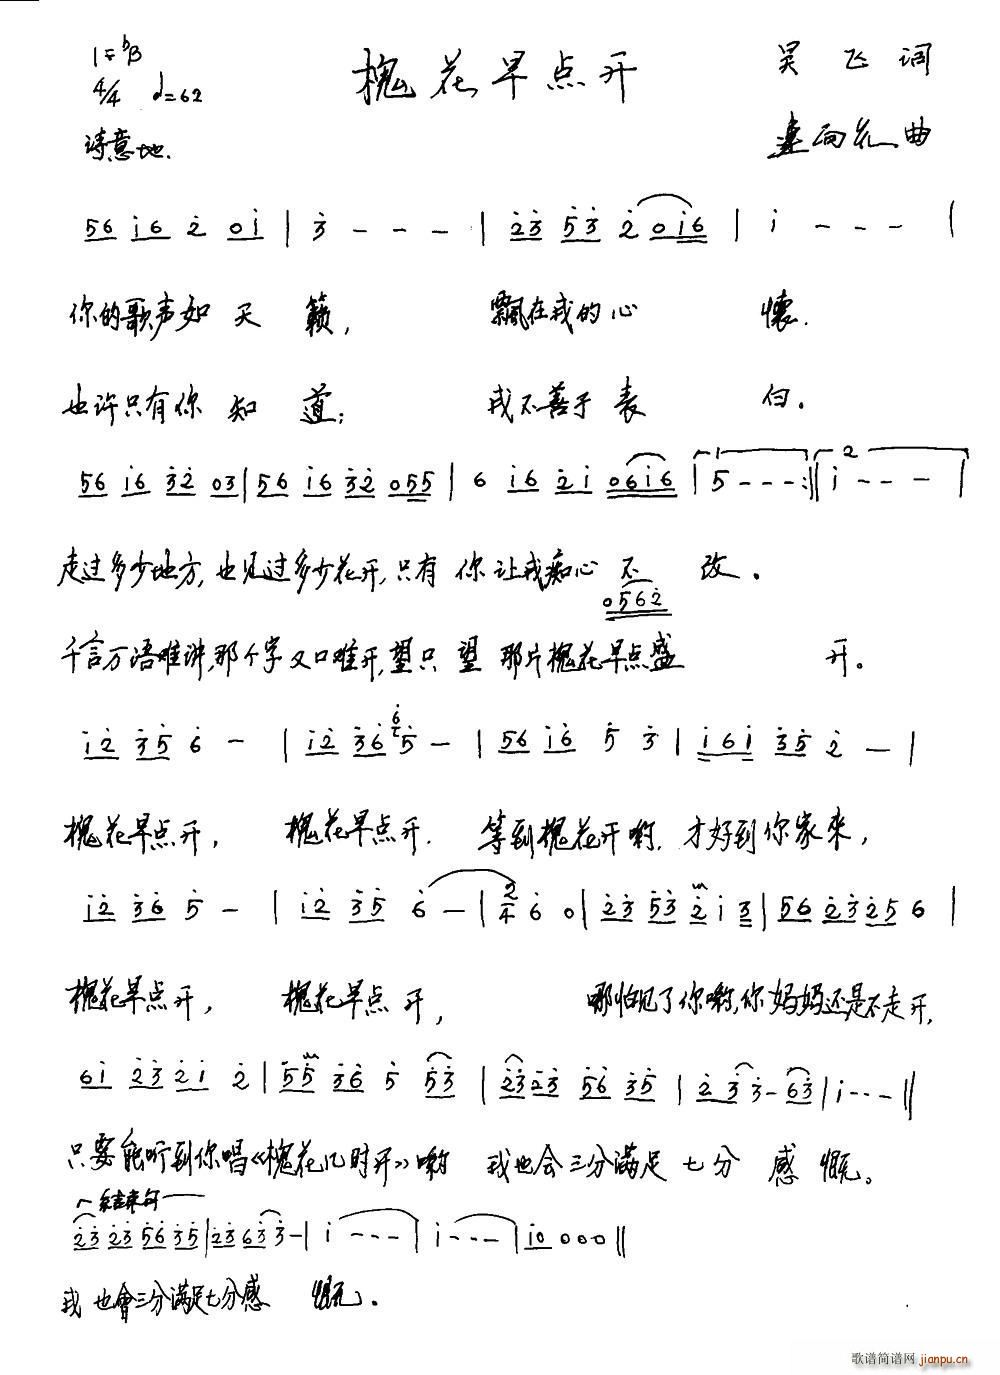 1=bB 槐花早点开 吴飞词
4/4 ♩=62
诗意地. 曲
56 i6 2 0i | 3 - - - | 23 53 2 0i6 | i - - - |
你的歌声如天籁, 飘在我的心怀.
也许只有你知道; 我不善于表白。
56 i6 32 03 | 56 i6 32 055 | 6 i6 2i 06i6 | 1 5 - - - :|| 2 i - - - |
走过多少地方,也见过多少花开,只有你让我痴心不改。
0562
千言万语难讲,那个字又口难开,望只望那片槐花早点盛开。
i2 35 6 - | i2 36 6 5 - | 56 i6 5 3 | i6i 35 2 - |
槐花早点开, 槐花早点开. 等到槐花开哟.才好到你家来,
i2 36 5 - | i2 35 6 - | 2/4 6 0 | 23 53 2 i 3 | 56 23 25 6 |
槐花早点开, 槐花早点开, 哪怕见了你哟,你妈妈还是不走开,
6i 23 2i 2 | 55 36 5 53 | 23 23 56 35 | 2 3 3 - 63 | i - - - ||
只要能听到你唱《槐花几时开》哟 我也会三分满足七分感慨。
结束句
23 23 56 35 | 23 6 3 3 - | i - - - | i - - - | i0 0 0 0 ||
我也會三分满足七分感慨。
歌谱简谱网
jianpu.cn